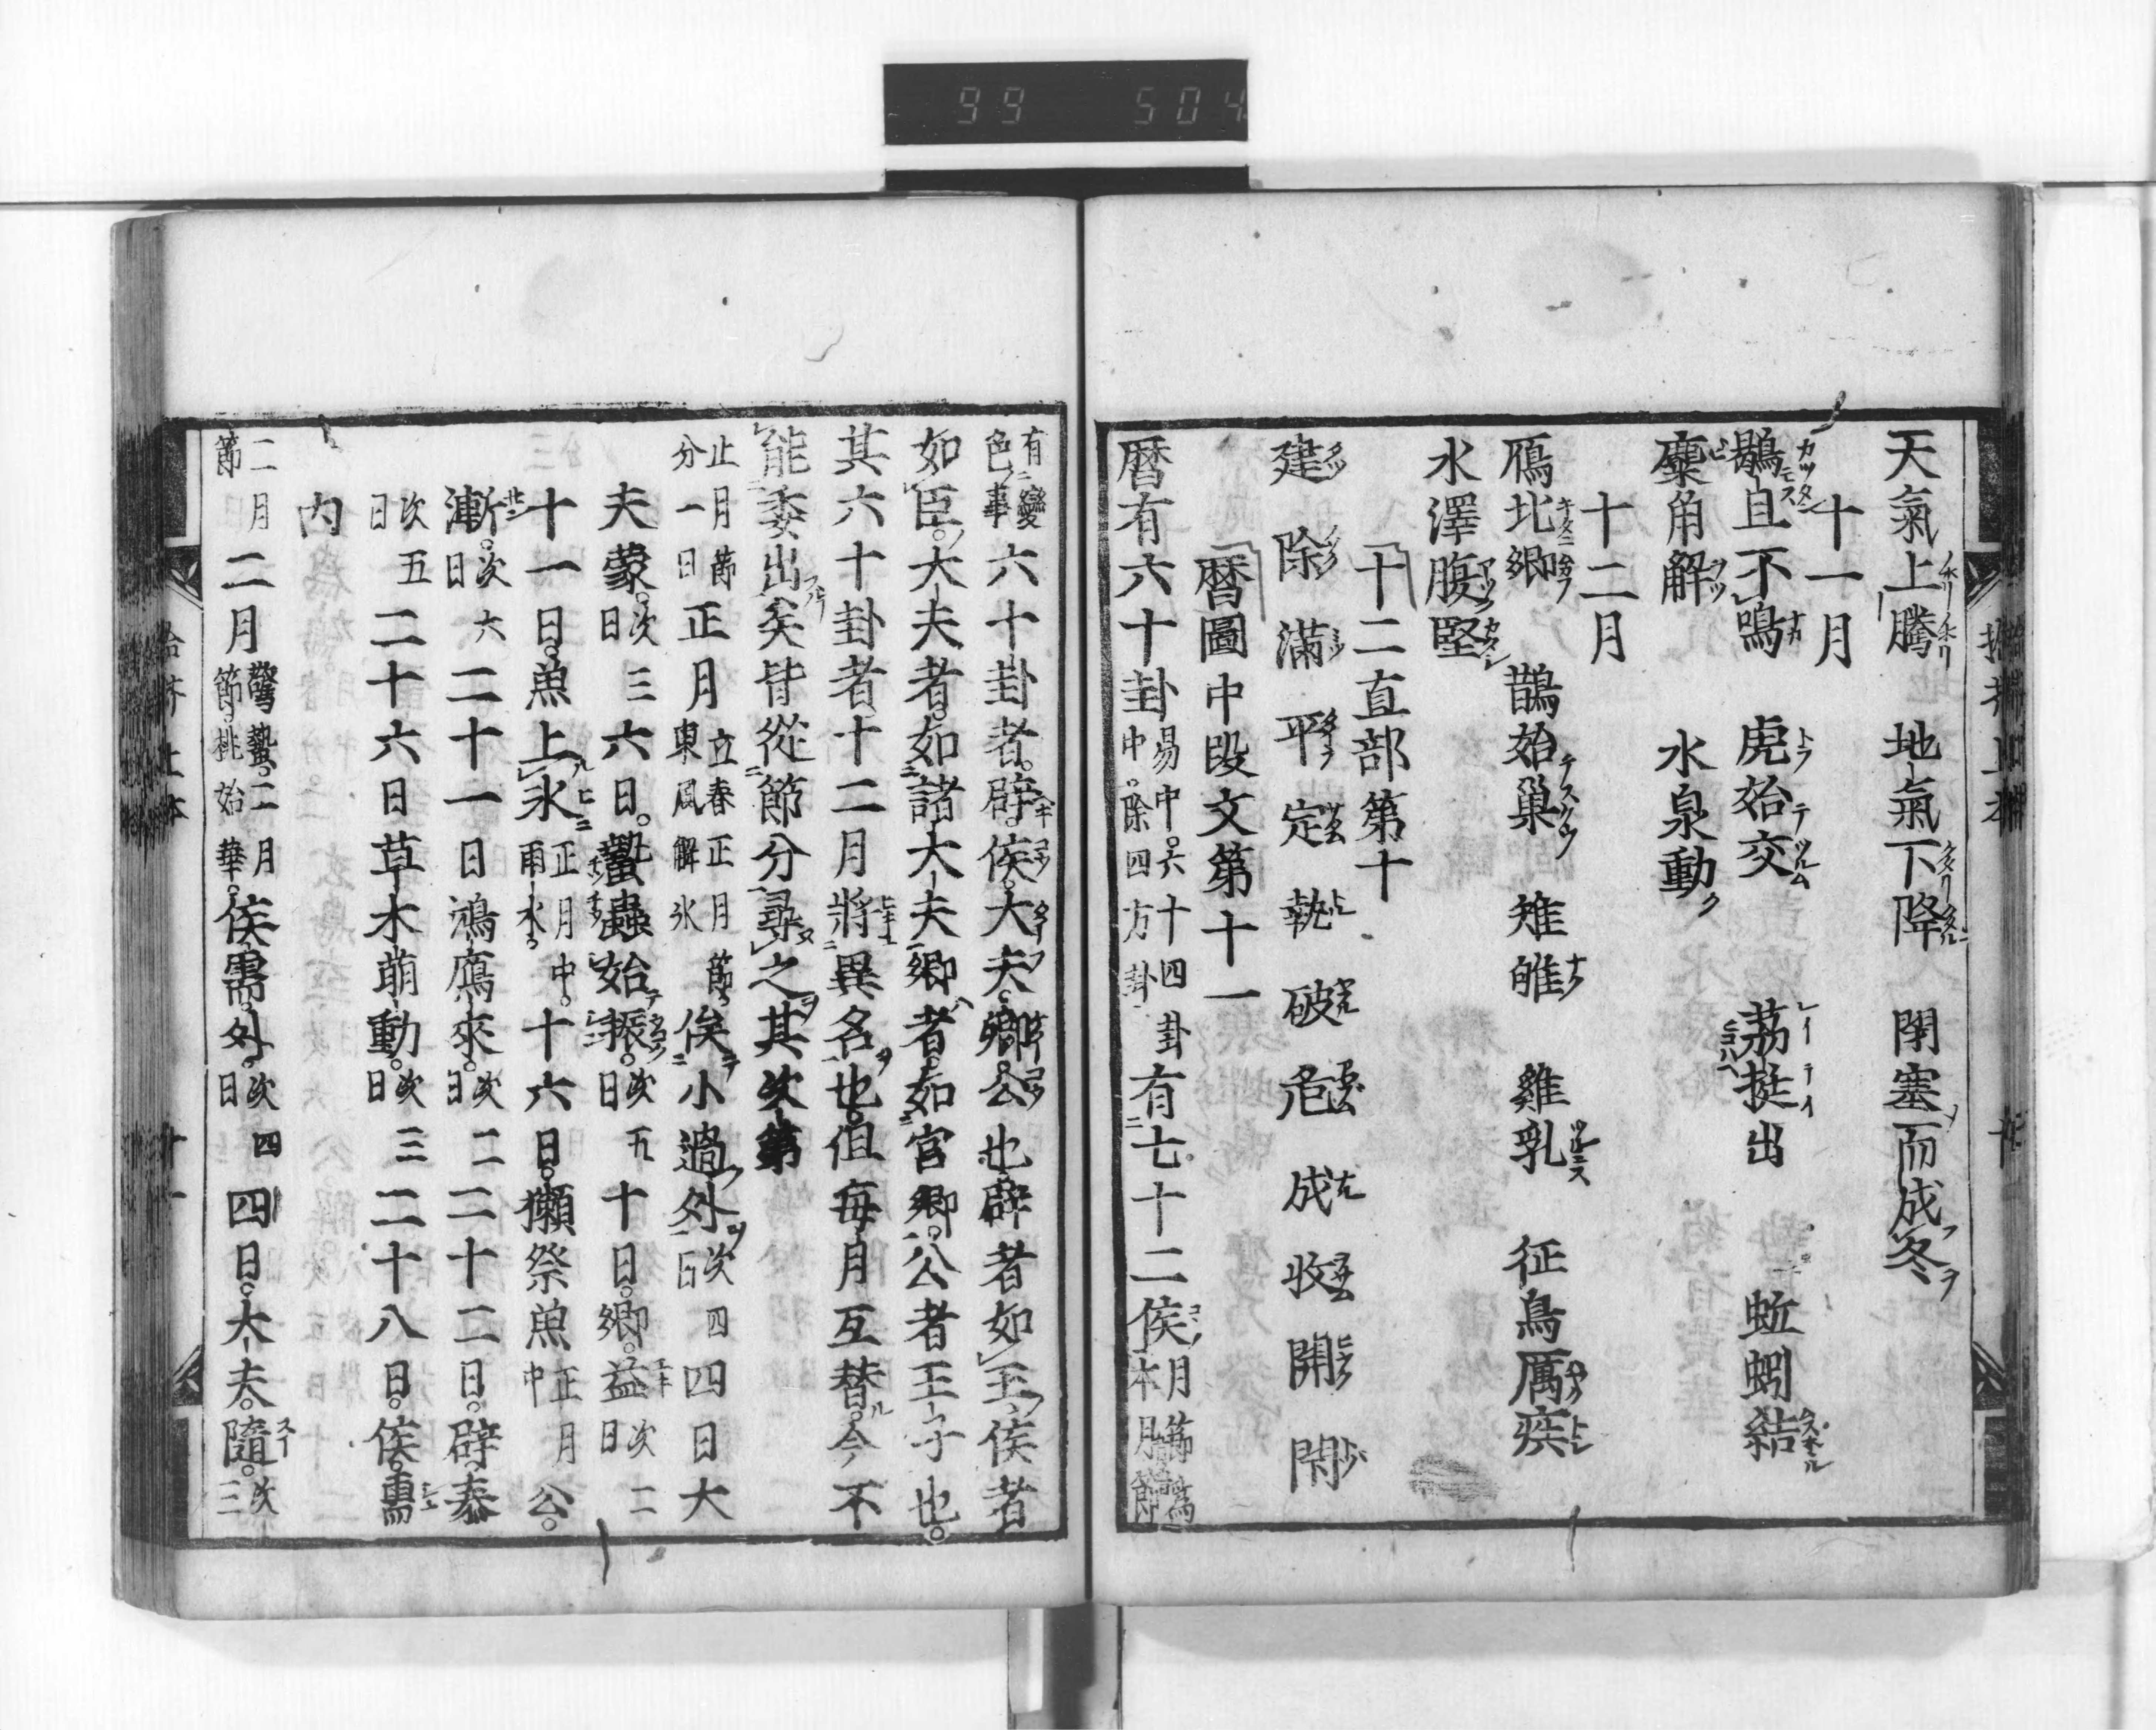 99 504
天氣上騰 地氣下降 閉塞而成冬
十一月
鶡旦不鳴 虎始交 荔挺出 蚯蚓結
麋角解 水泉動
十二月
鴈北鄉 鵲始巢 雉雊 雞乳 征鳥厲疾
水澤腹堅
十二直部第十
建 除 滿 平 定 執 破 危 成 收 開 閉
暦圖中段文第十一
暦有六十卦 易中六十四卦 中除四方卦 有七十二侯 月節爲 本月節
有變 色事 六十卦者辟侯大夫卿公也辟者如王侯者
如臣大夫者如諸大夫卿者如官卿公者王子也
其六十卦者十二月將異名也但每月互替今不
能委出矣皆從節分尋之其次第
正月節 分一日 正月 立春正月節 東風解氷 侯小過外 次四日 四日大
夫蒙 次三日 六日蟄蟲始振 次五日 十日卿益 次二日
十一日魚上氷 正月中 雨水 十六日獺祭魚 正月中 公
漸 次六日 二十一日鴻鴈來 次二日 二十二日辟泰
次五日 二十六日草木萠動 次三日 二十八日侯需
内
二月節 二月 驚蟄二月節桃始華 侯需外 次四日 四日大夫隨 次三